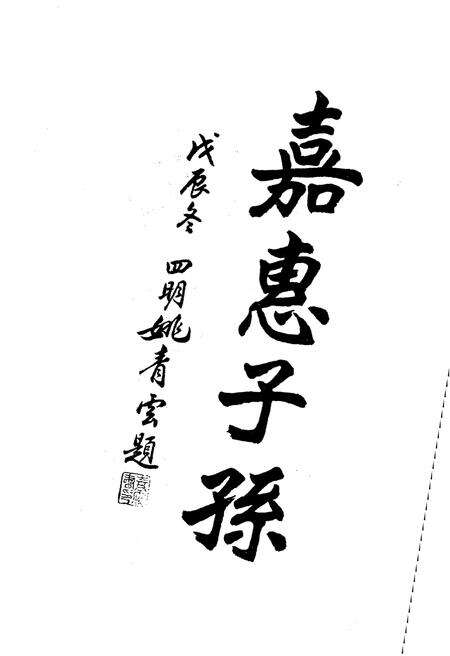 嘉惠子孫
戊辰冬 四明姚青雲題